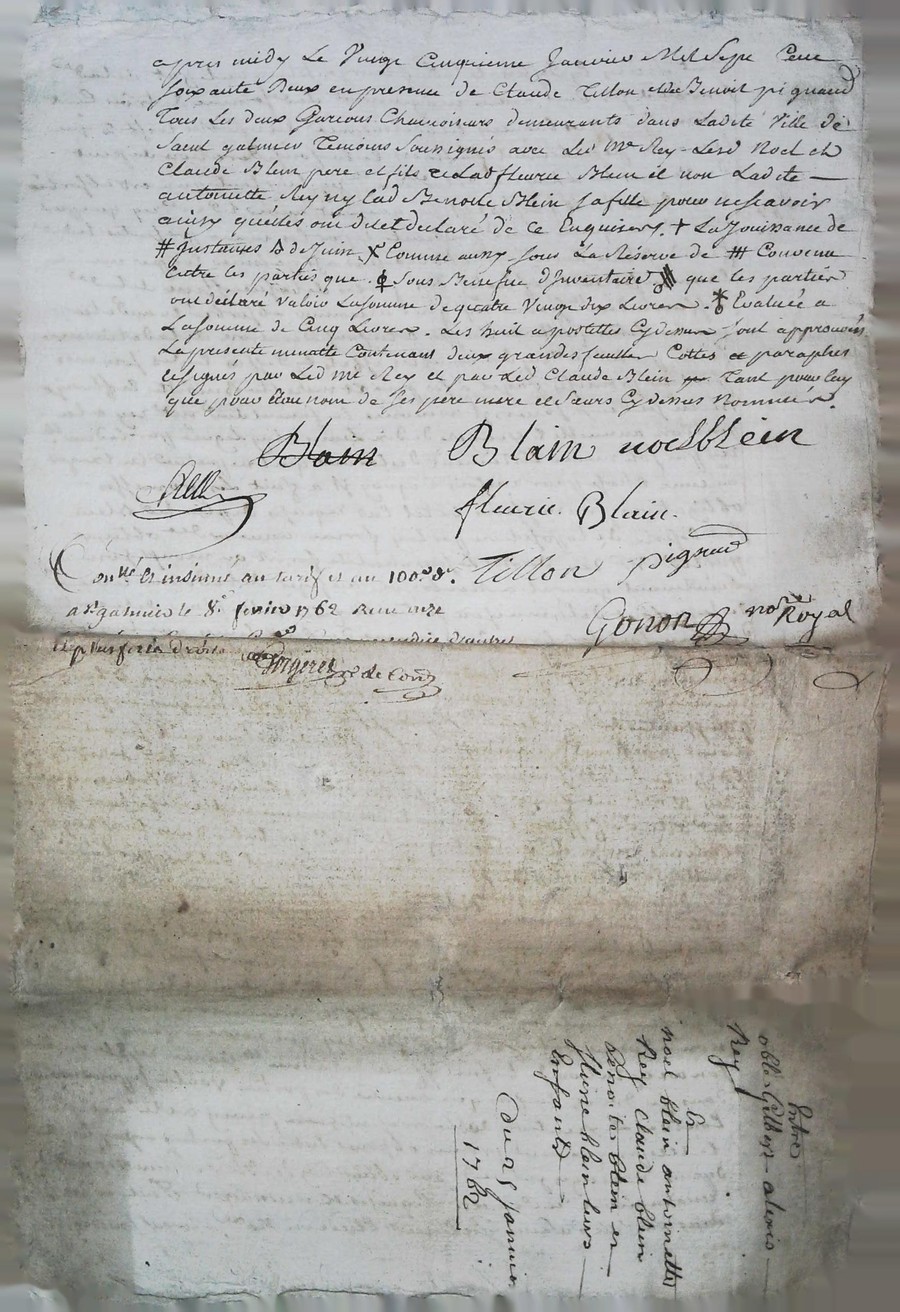 apres midy Le Vingt Cinquieme Janvier Mil Sept Cent
soixante Deux en presence de Claude Tillon et de Benoit pignard
Tous Les deux Garcons Chamoiseurs demeurants dans Ladite Ville de
Saint galmier Temoins soussignés avec Led Me Rey Lesd Noel et
Claude Blein pere et fils et Lad fleurie Blein et non Ladite —
antoinette Rey ny Lad Benoite Blein sa fille pour ne scavoir
ainsy quelles ont dit et declaré de ce Enquises. + La Jouissance de
# Justaures de Juin X Comme aussy sous La Réserve de # Convenu
Entre les parties que . sous Benefice d'Inventaire que les parties
ont déclaré valoir La somme de quatre Vingt dix Livres . Evaluée a
La somme de Cinq Livres . Les huit apostilles Cy dessus sont approuvées
La presente minutte Contenant deux grandes feuilles Cottés et paraphés
et signés par Led Me Rey et par Led Claude Blein Tant pour luy
que pour et au nom de ses pere mere et soeurs Cy dessus Nommées.
Blain Blain noel blein
fleurie Blain
Tillon pignard
Con.lé et insinué au tarif et au 100.e d.r
a St galmier le 8.e fevrier 1762 Reçu
Gonon no.re Royal
de Con.
Entre
Alexis
Rey
Et
noel blein antoinette
Rey claude blein
benoite blein et
flurie blein leurs
Enfants
Du 25 Janvier
1762